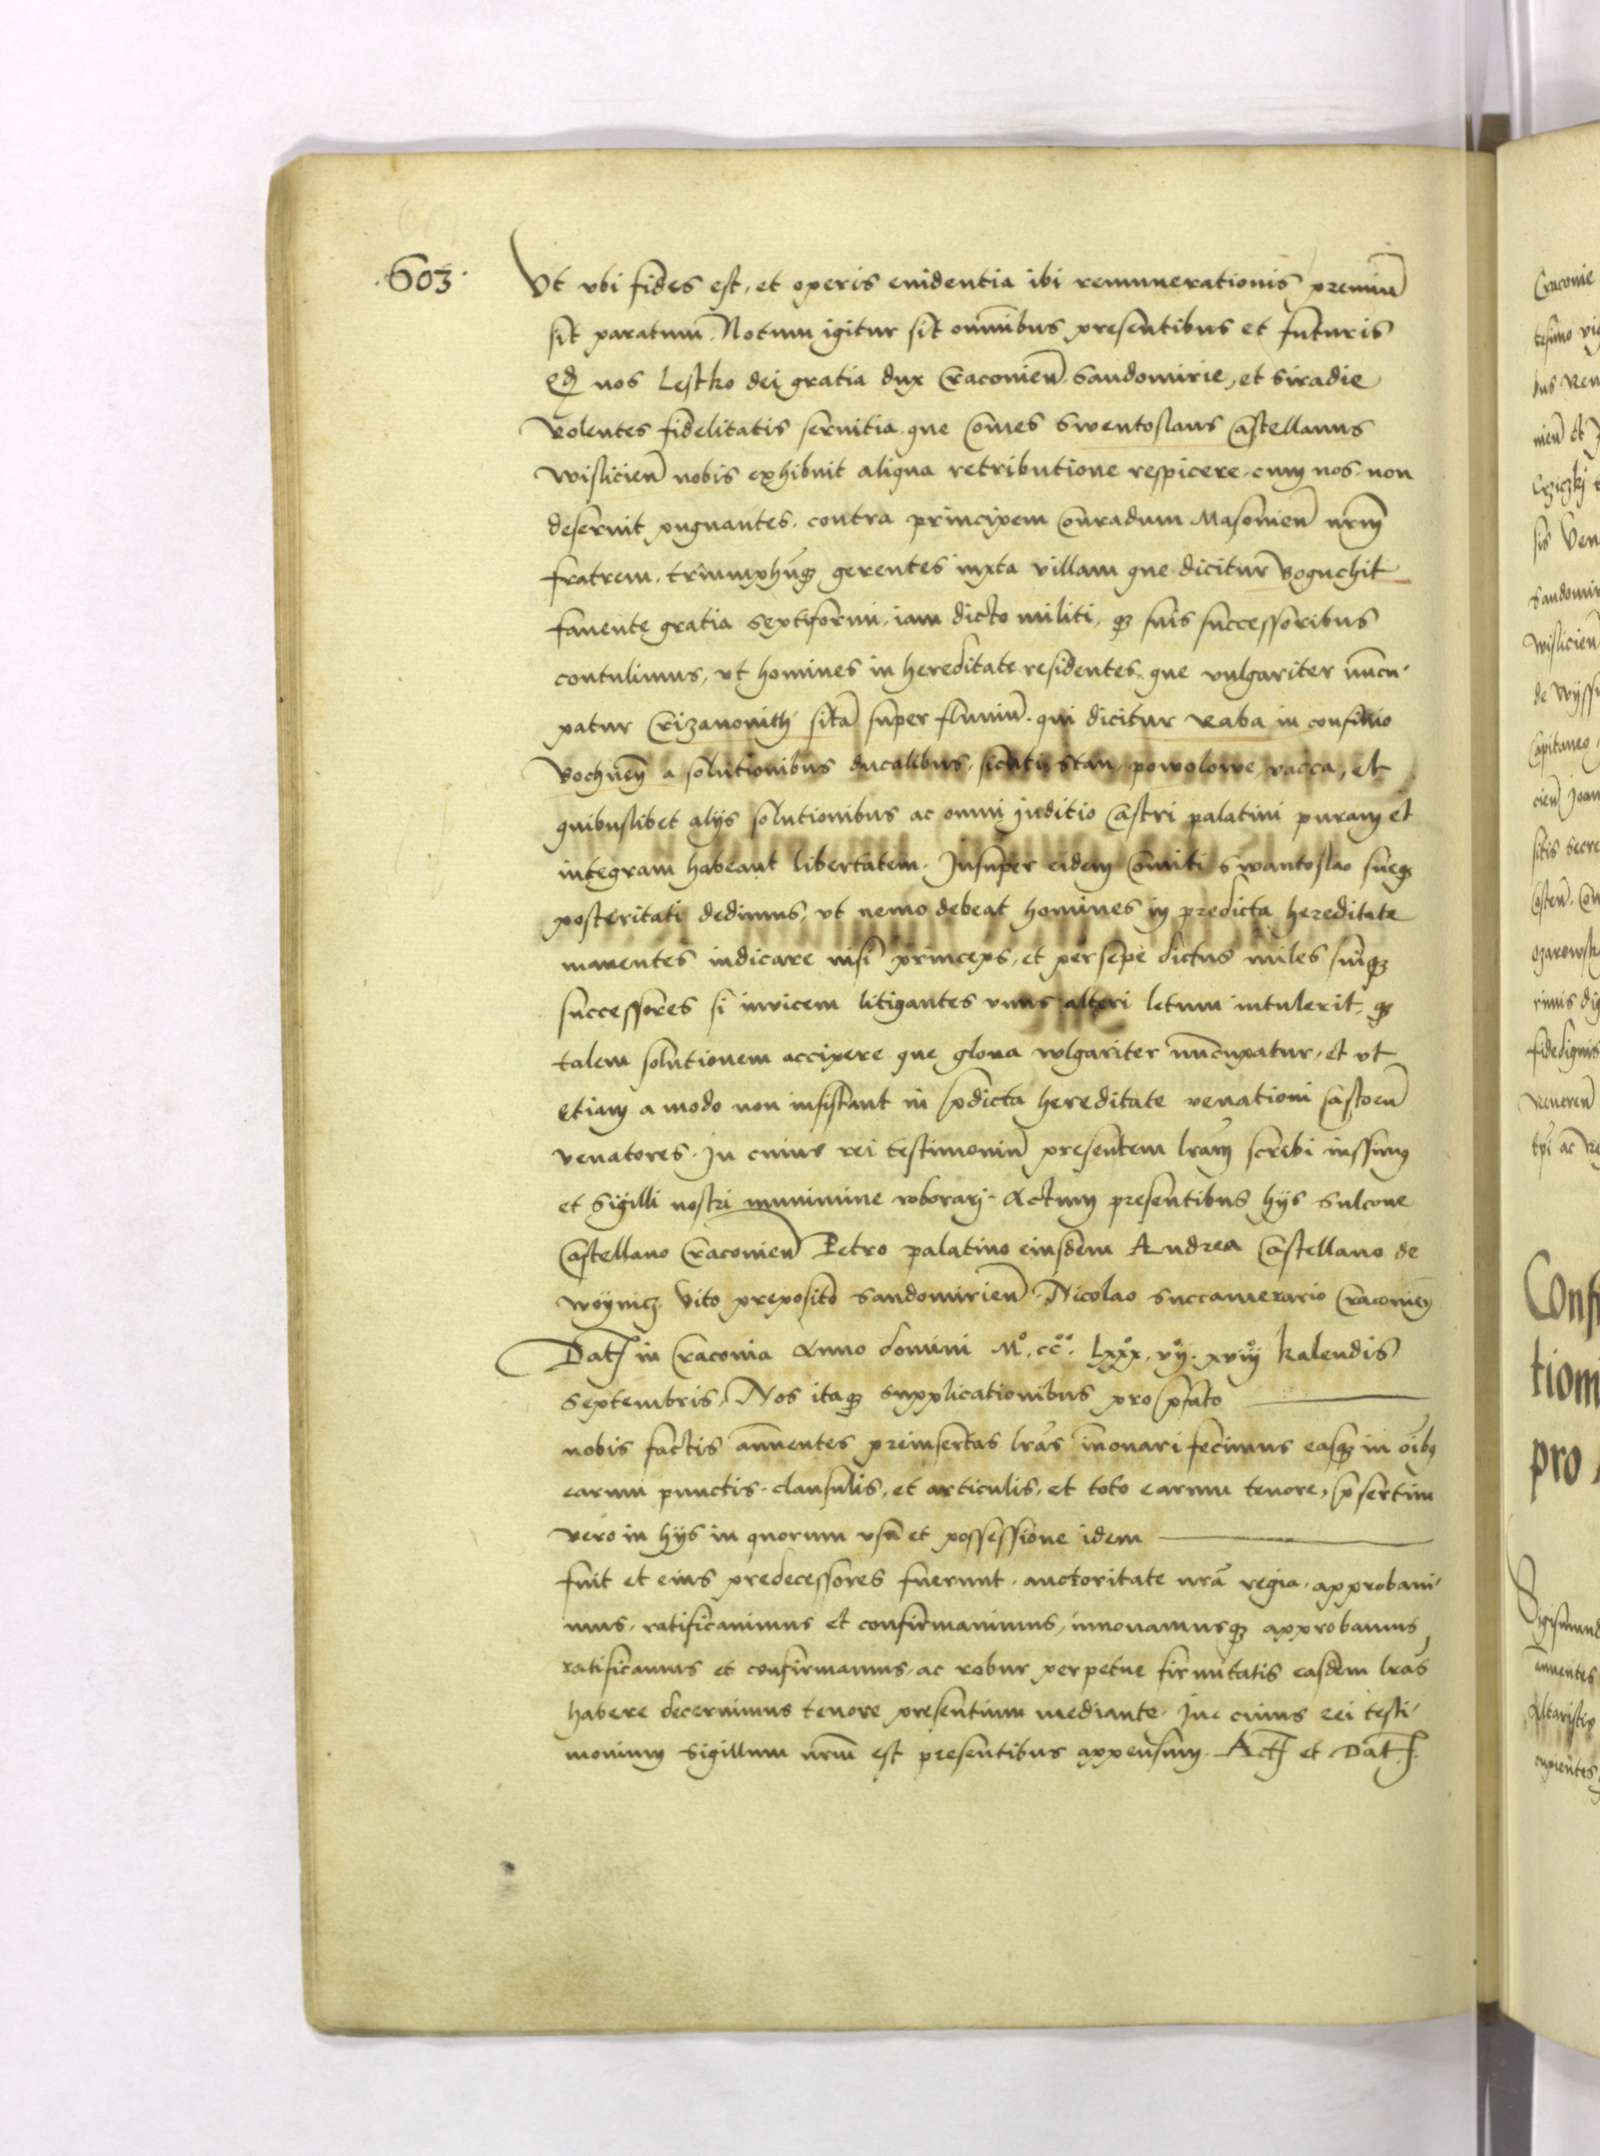 603
Vt vbi fides est, et operis euidentia ibi remunerationis premiũ
sit paratum. Notum igitur sit omnibus presentibus et futuris
Qđ nos Lestko dei gratia dux Cracouieñ Sandomirie, et Siradie
Volentes fidelitatis seruitia que Comes Swentoslaus Castellanus
Wislicieñ nobis exhibuit aliqua retributione respicere, cum nos non
deseruit pugnantes contra principem Conradum Masouieñ nrm̃
fratrem, triumphũqȝ gerentes iuxta villam que dicitur Boguchit
fauente gratia septiformi, iam dicto militi, qȝ suis successoribus
contulimus, vt homines in hereditate residentes que vulgariter nũcu-
patur Crizanouith sitã super fluuiũ qui dicitur Raba in confinio
Bochneñ a solutionibus ducalibus, scilicet stan, powolowe, vacca, et
quibuslibet alijs solutionibus ac omni juditio Castri palatini puram et
integram habeant libertatem. Insuper eidem Comiti Swantoslao sueqȝ
posteritati dedimus, vt nemo debeat homines in predicta hereditate
manentes iudicare nisi princeps, et persepe dictus miles suiqȝ
successores si inuicem litigantes vnus alteri letum intulerit, qȝ
talem solutionem accipere que gloua wlgariter nũcupatur, et vt
etiam a modo non insistant in p̃dicta hereditate venationi Castoeñ
venatores. In cuius rei testimoniũ presentem lrãm scribi iussimus
et Sigilli nostri munimine roborari. Actum presentibus hijs Sulcone
Castellano Cracouieñ Petro palatino eiusdem Andrea Castellano de
Woynicz Vito preposito Sandomirieñ Nicolao Succamerario Cracouieñ
Dat in Cracouia Anno domini Mº. ccº. Lxxxº. vijº. xviijº kalendis
Septembris. Nos itaqȝ supplicationibus pro p̃fato
nobis factis annuentes preinsertas lrãs innouari fecimus easqȝ in oĩbus
earum punctis, clausulis, et articulis, et toto earum tenore, p̃sertim
vero in hijs in quorum vsu et possessione idem
fuit et eius predecessores fuerunt, auctoritate nrã regia, approbaui-
mus, ratificauimus et confirmauimus, innouamusqȝ approbamus,
ratificamus et confirmamus, ac robur perpetue firmitatis easdem lrãs
habere decernimus tenore presentium mediante. In cuius rei testi-
monium Sigillum nrm̃ est presentibus appensum. Act et Dat.
Cracouie
bus
Wislicien
Capitaneo
fidedignis
Confir
tiom
pro
Sigismund
annuentes
cupientes